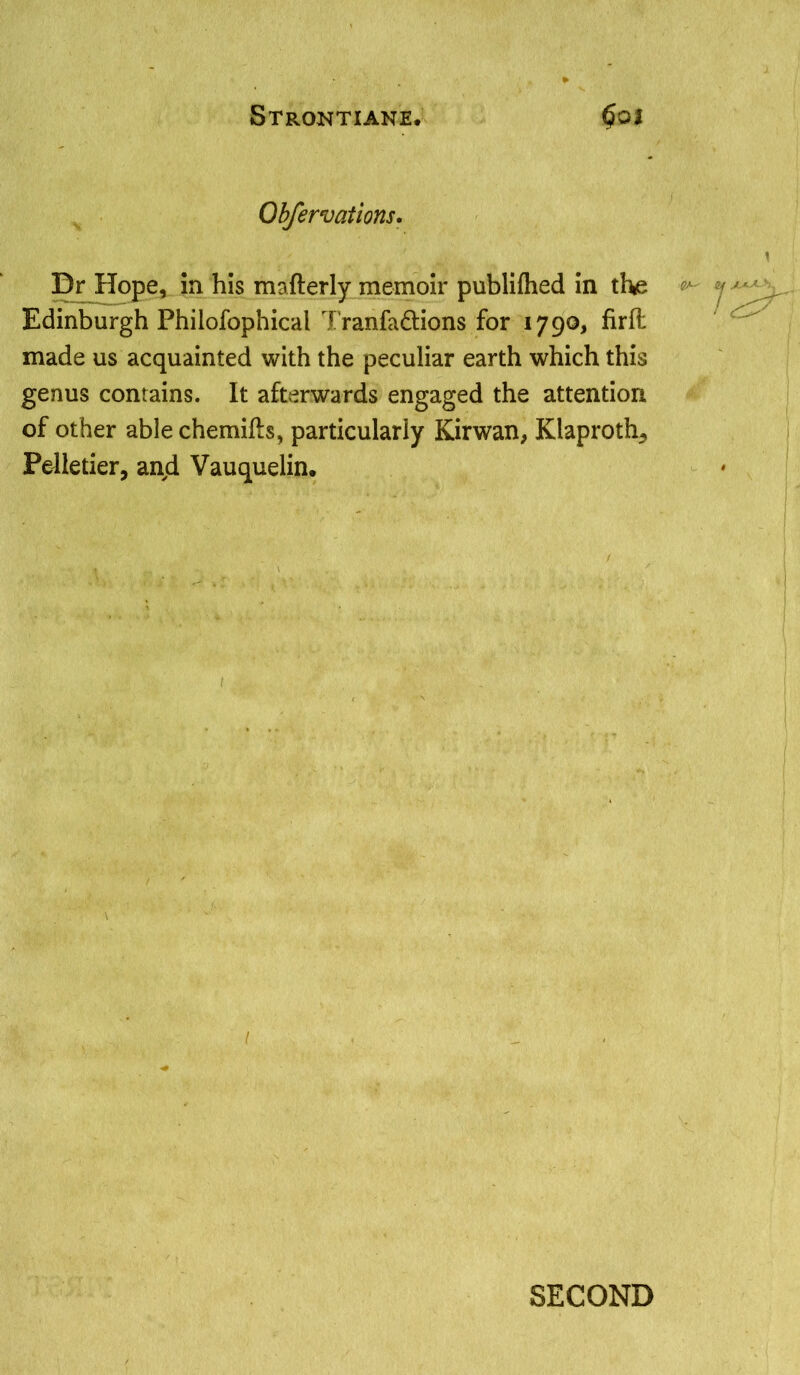 STRONTIANE. 601
Obſervations.
Dr Hope, in his maſterly memoir publiſhed in the
Edinburgh Philoſophical Tranſactions for 1790, firſt
made us acquainted with the peculiar earth which this
genus contains. It afterwards engaged the attention
of other able chemiſts, particularly Kirwan, Klaproth,
Pelletier, and Vauquelin.
SECOND